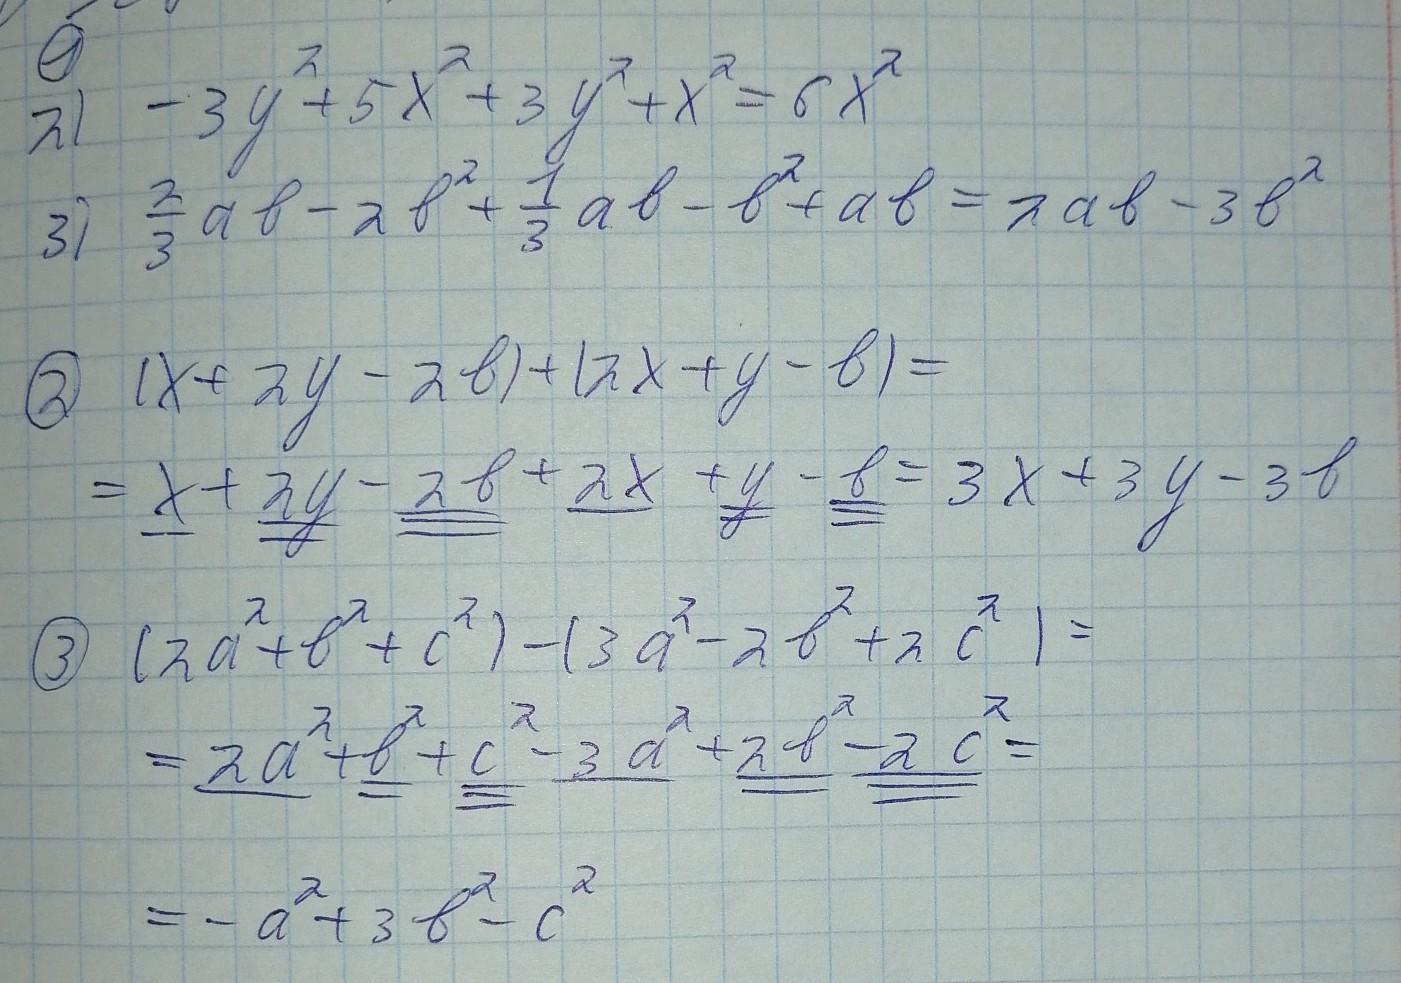 ①
2) -3y²+5x²+3y²+x²=6x²
3) 2/3 ab-2b²+1/3 ab-b²+ab=2ab-3b²
② (x+2y-2b)+(2x+y-b)=
=x+2y-2b+2x+y-b=3x+3y-3b
③ (2a²+b²+c²)-(3a²-2b²+2c²)=
=2a²+b²+c²-3a²+2b²-2c²=
=-a²+3b²-c²